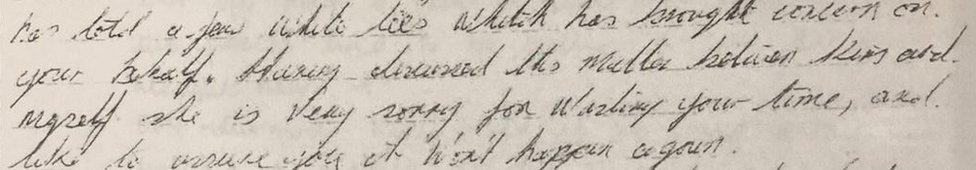 has told a few white lies whitch has brought concern on.
your behalf. Having discussed this matter between Kim and.
myself she is very sorry for wasting your time, and.
like to assure you it won't happen again.